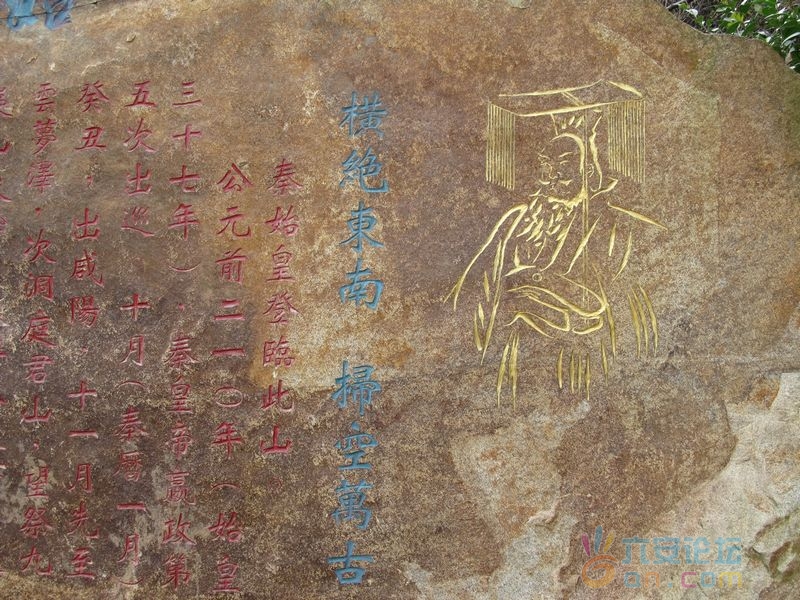 橫絕東南 掃空萬古
秦始皇登臨此山
公元前二一〇年（始皇
三十七年），秦皇帝嬴政第
五次出巡 十月（秦曆一月）
癸丑，出咸陽，十一月先至
雲夢澤，次洞庭君山，望祭九
六日论坛